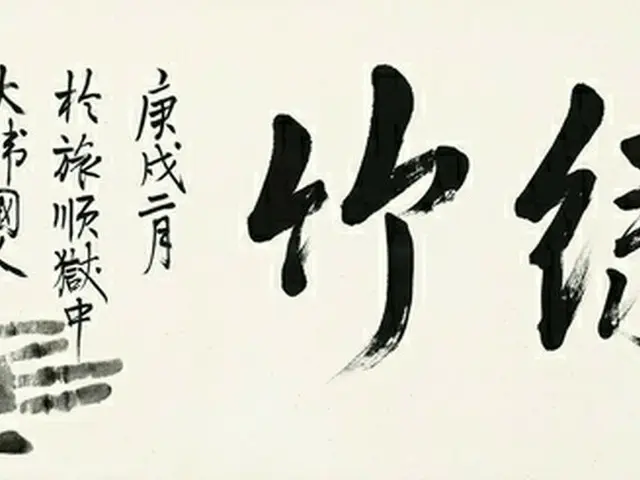 竹
庚戌二月
於旅順獄中
大韓國人